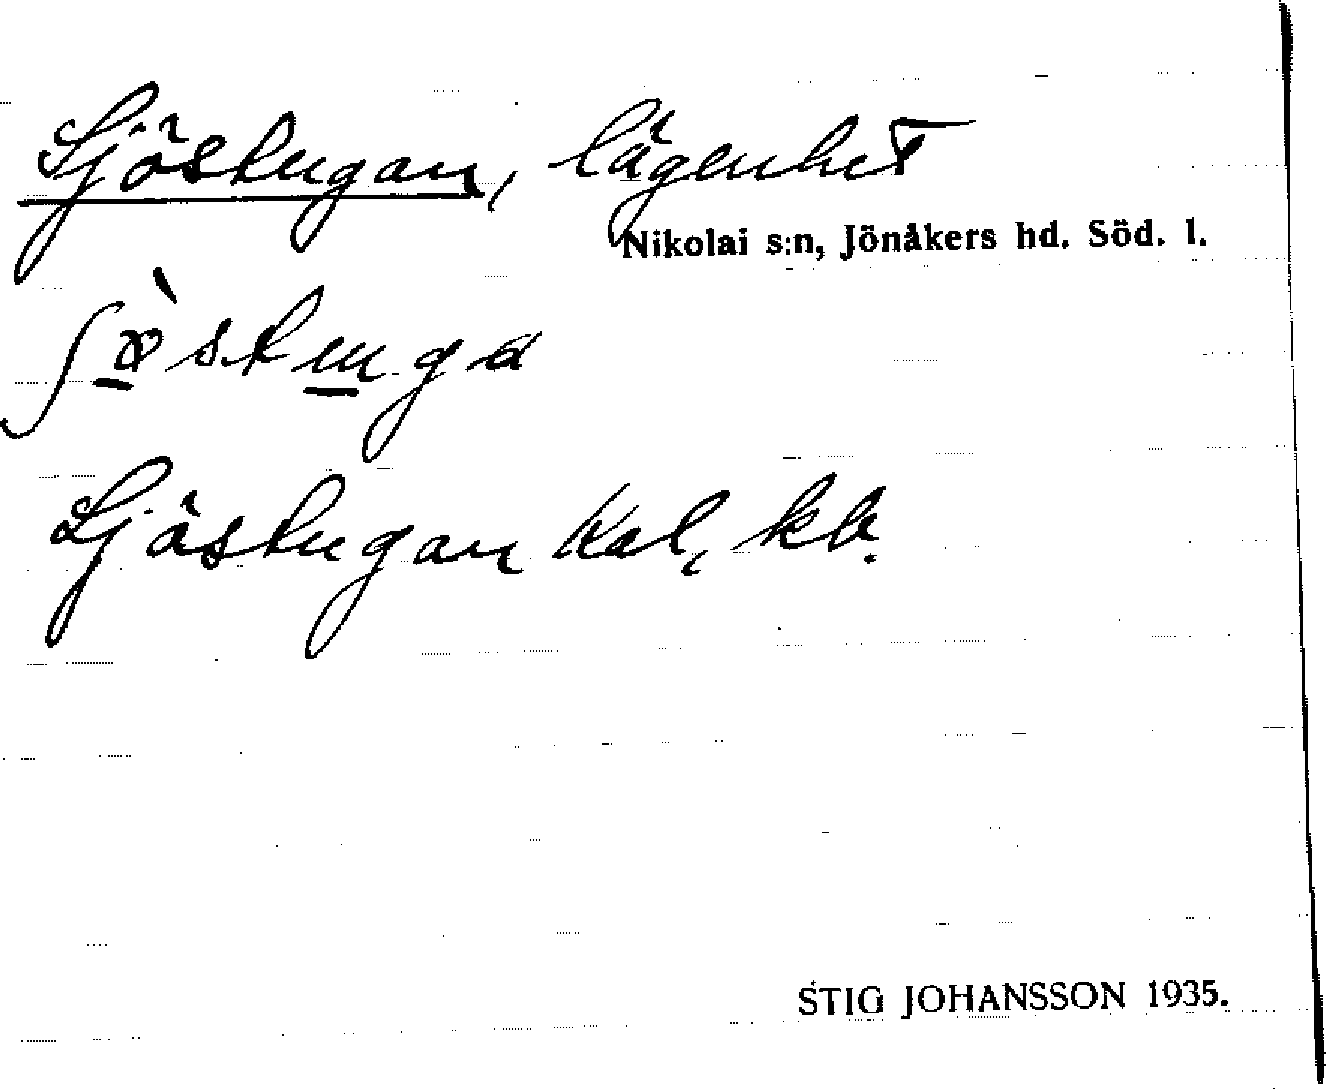 Sjöstugan, lägenhet
Nikolai s:n, Jönåkers hd. Söd. l.
Sjöstugan Kal, kb.
STIG JOHANSSON 1935.